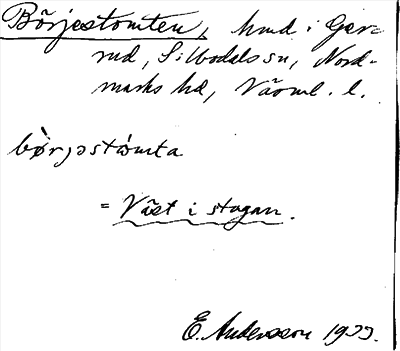 Börjestomten, hmd i Ger=
rud, Silbodals sn, Nord-
marks hd, Värml. l.
børjəstɷmta
= Väst i stugan.
E. Andersson 1933.